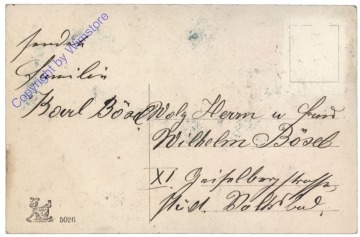 Familie
Karl Bösel
Copyright by Wmstore
Herrn u Frau
Wilhelm Bösel
XI Geiselbergstrasse
städt. Volksbad
5026